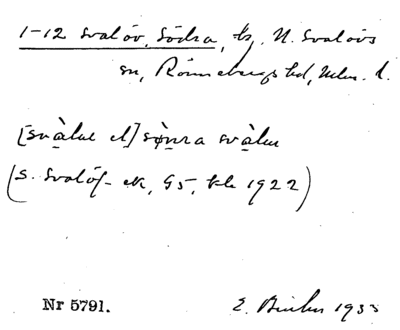 1-12 Svalöv, Södra, by, N. Svalövs
sn, Rönnebergs hd, Mlm. l.
[svàlue el] sònra svàlue
(S. Svalöf - ek, G5, kb 1922)
Nr 5791.
E. 1933